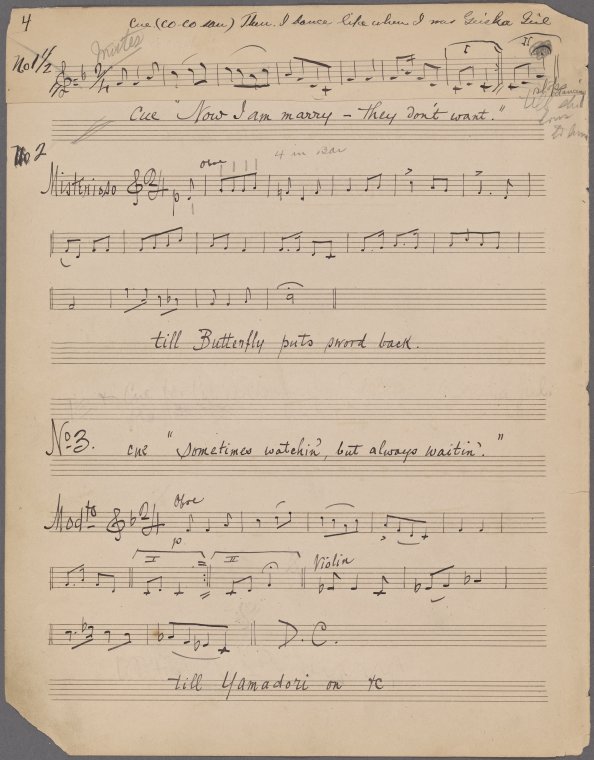 4 Cue (Co-Co San) Then. I dance like when I was Geisha Girl
No 1 1/2
mutes
2/4
I
II
stops dancing
Cue "Now I am marry – they don't want."
No 2
4 in bar
oboe
Misterioso 2/4 p
till Butterfly puts sword back.
No 3. cue "Sometimes watchin', but always waitin'."
Oboe
Modto 2/4 p
I II Violin
D.C.
till Yamadori on &c